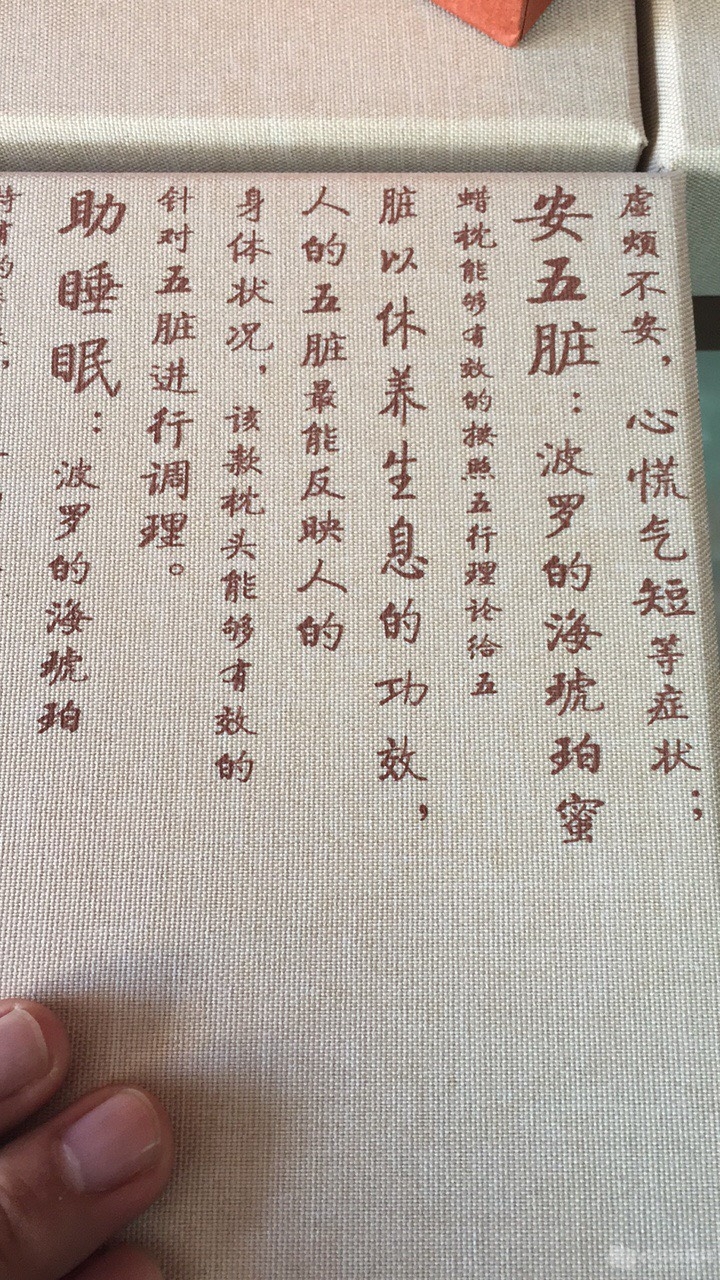 虚烦不安，心慌气短等症状；
安五脏：波罗的海琥珀蜜
蜡枕能够有效的按照五行理论给五
脏以休养生息的功效，
人的五脏最能反映人的
身体状况，该款枕头能够有效的
针对五脏进行调理。
助睡眠：波罗的海琥珀
特有的